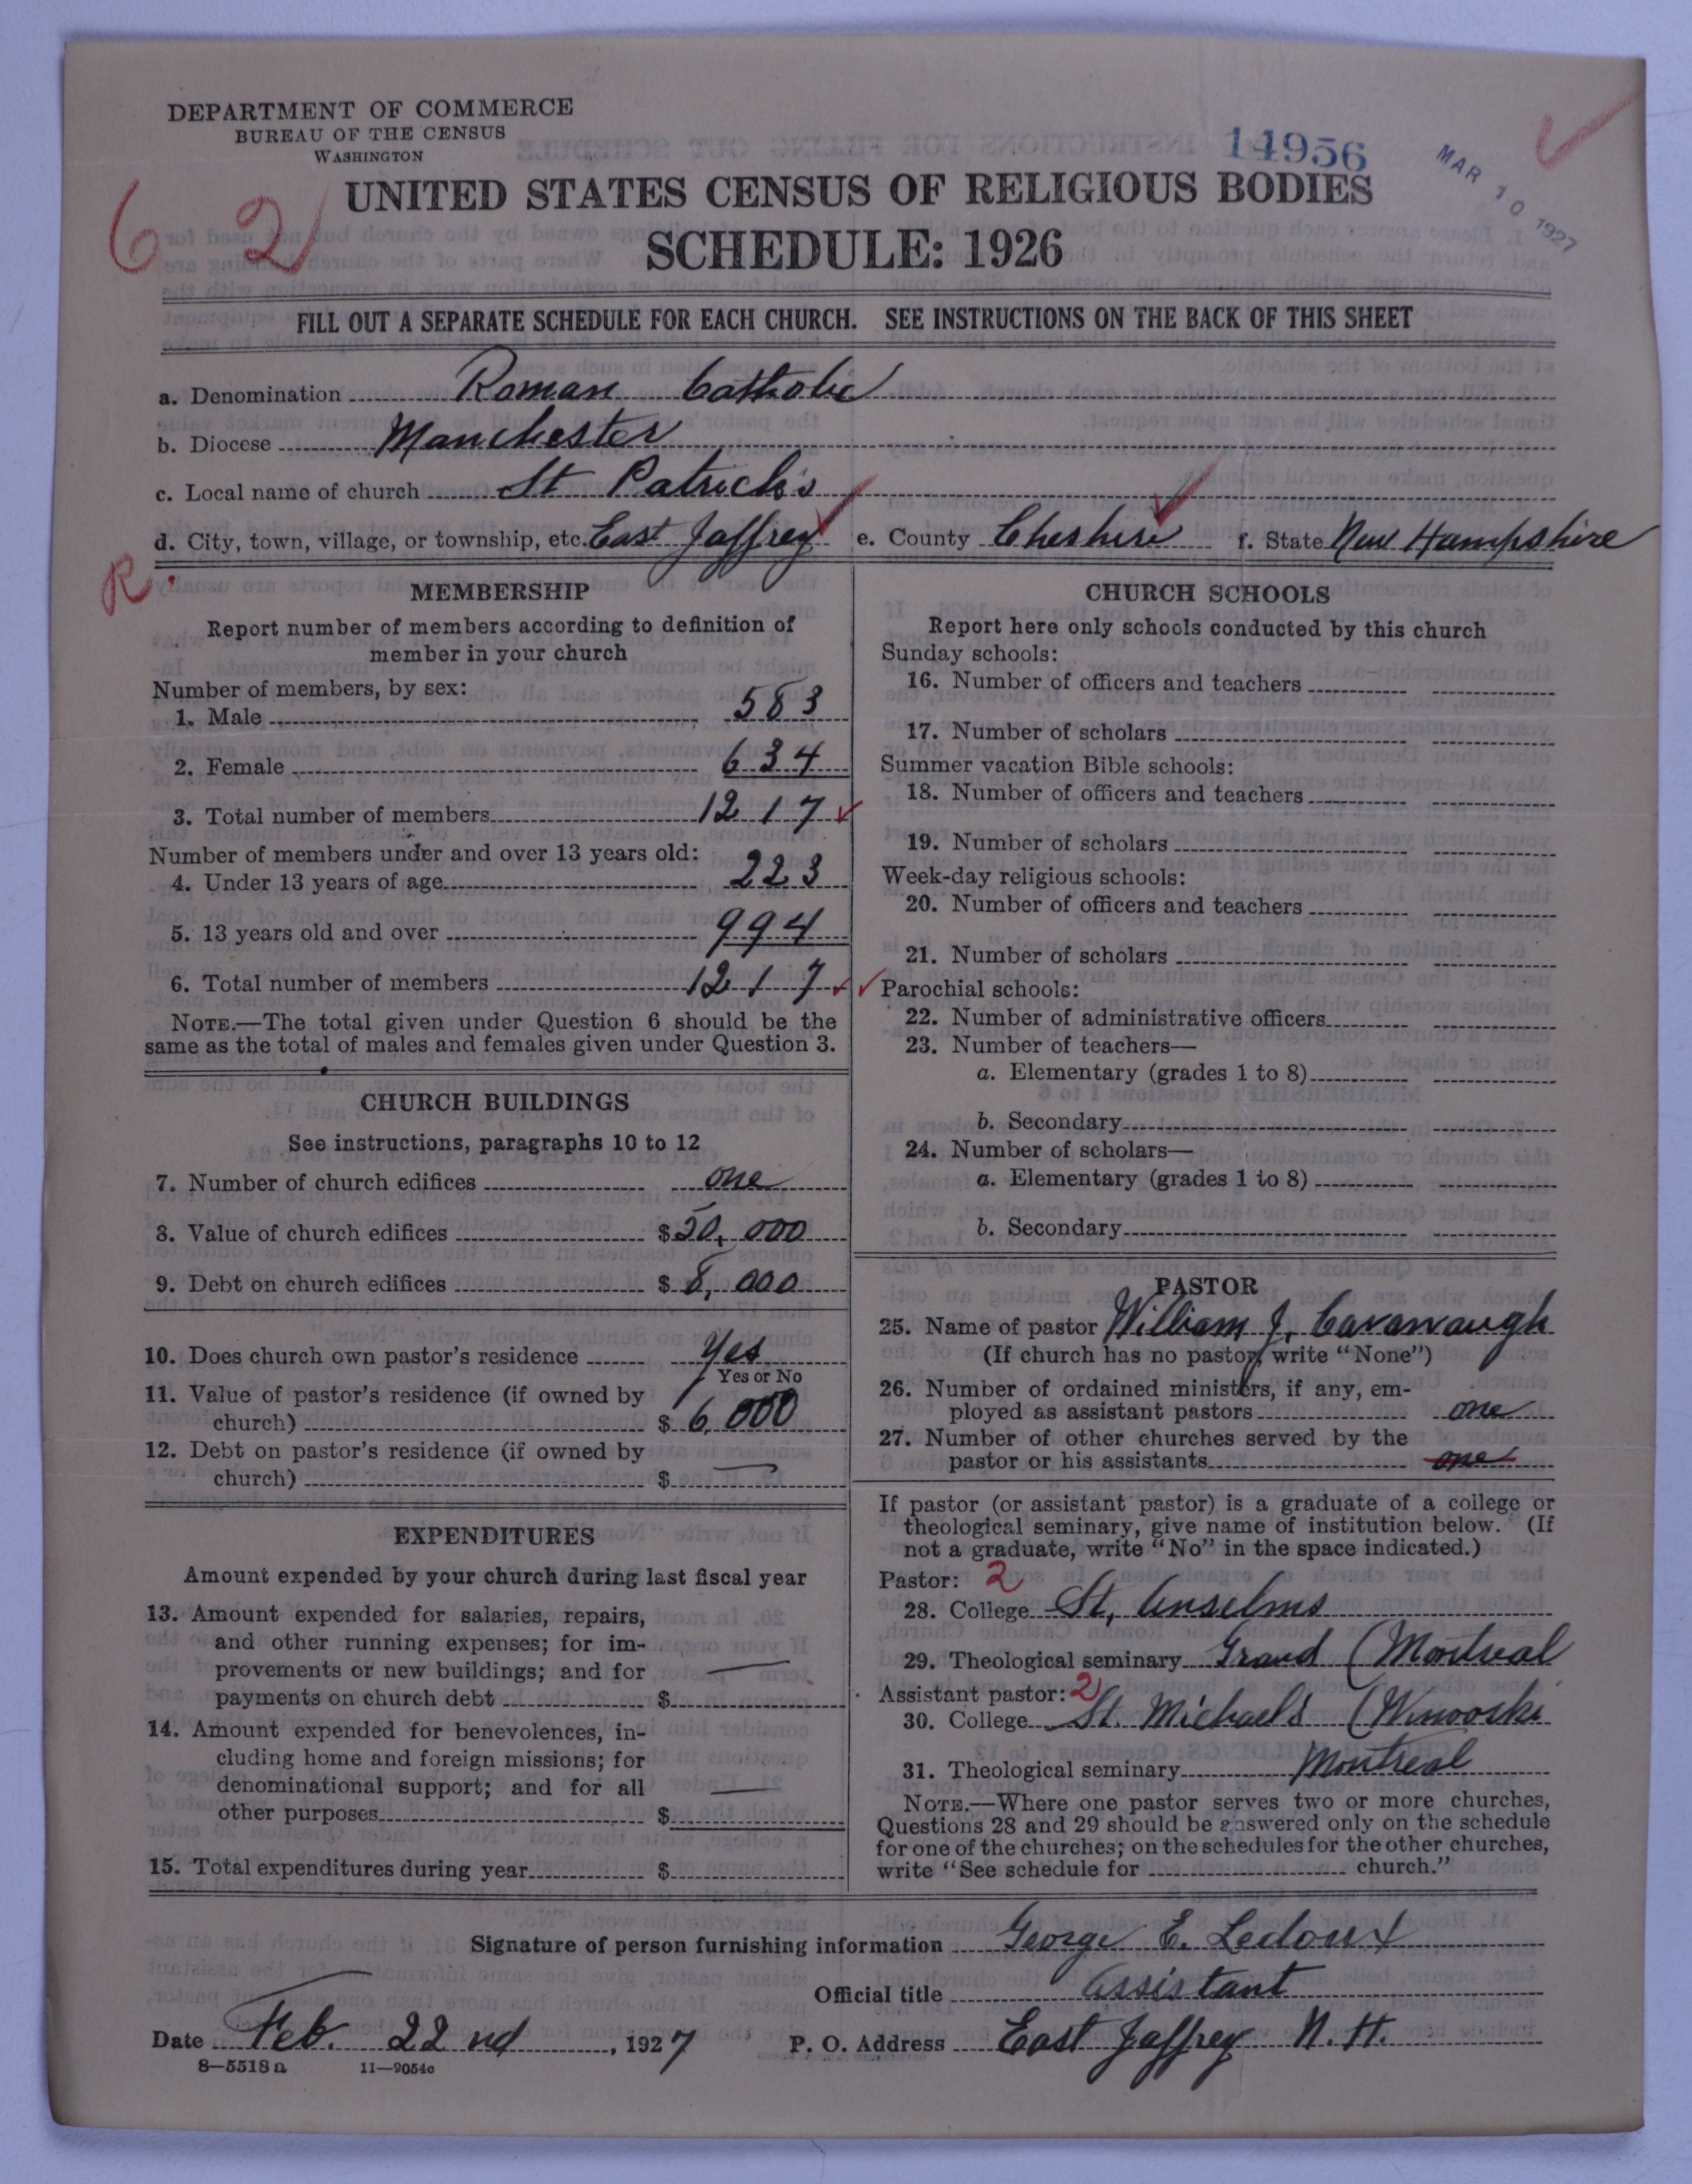 DEPARTMENT OF COMMERCE
BUREAU OF THE CENSUS
WASHINGTON
14956
MAR 10 1927
6 2
UNITED STATES CENSUS OF RELIGIOUS BODIES
SCHEDULE: 1926
FILL OUT A SEPARATE SCHEDULE FOR EACH CHURCH. SEE INSTRUCTIONS ON THE BACK OF THIS SHEET
a. Denomination Roman Catholic
b. Diocese Manchester
c. Local name of church St Patrick's
d. City, town, village, or township, etc. East Jaffrey e. County Cheshire f. State New Hampshire
R
MEMBERSHIP
Report number of members according to definition of
member in your church
Number of members, by sex:
1. Male 583
2. Female 634
3. Total number of members 1217
Number of members under and over 13 years old:
4. Under 13 years of age 223
5. 13 years old and over 994
6. Total number of members 1217
NOTE.—The total given under Question 6 should be the
same as the total of males and females given under Question 3.
CHURCH BUILDINGS
See instructions, paragraphs 10 to 12
7. Number of church edifices one
8. Value of church edifices $50,000
9. Debt on church edifices $8,000
10. Does church own pastor's residence Yes
Yes or No
11. Value of pastor's residence (if owned by
church) $6,000
12. Debt on pastor's residence (if owned by
church) $ —
EXPENDITURES
Amount expended by your church during last fiscal year
13. Amount expended for salaries, repairs,
and other running expenses; for im-
provements or new buildings; and for
payments on church debt $ —
14. Amount expended for benevolences, in-
cluding home and foreign missions; for
denominational support; and for all
other purposes $ —
15. Total expenditures during year $
CHURCH SCHOOLS
Report here only schools conducted by this church
Sunday schools:
16. Number of officers and teachers
17. Number of scholars
Summer vacation Bible schools:
18. Number of officers and teachers
19. Number of scholars
Week-day religious schools:
20. Number of officers and teachers
21. Number of scholars
Parochial schools:
22. Number of administrative officers
23. Number of teachers—
a. Elementary (grades 1 to 8)
b. Secondary
24. Number of scholars—
a. Elementary (grades 1 to 8)
b. Secondary
PASTOR
25. Name of pastor William J. Cavanaugh
(If church has no pastor, write "None")
26. Number of ordained ministers, if any, em-
ployed as assistant pastors one
27. Number of other churches served by the
pastor or his assistants one
If pastor (or assistant pastor) is a graduate of a college or
theological seminary, give name of institution below. (If
not a graduate, write "No" in the space indicated.)
Pastor: 2
28. College St. Anselms
29. Theological seminary Grand (Montreal
Assistant pastor: 2
30. College St. Michael's (Winooski
31. Theological seminary Montreal
NOTE.—Where one pastor serves two or more churches,
Questions 28 and 29 should be answered only on the schedule
for one of the churches; on the schedules for the other churches,
write "See schedule for church."
Signature of person furnishing information George E. Ledoux
Official title Assistant
Date Feb. 22nd, 1927 P. O. Address East Jaffrey N.H.
8—5518a 11—9054c